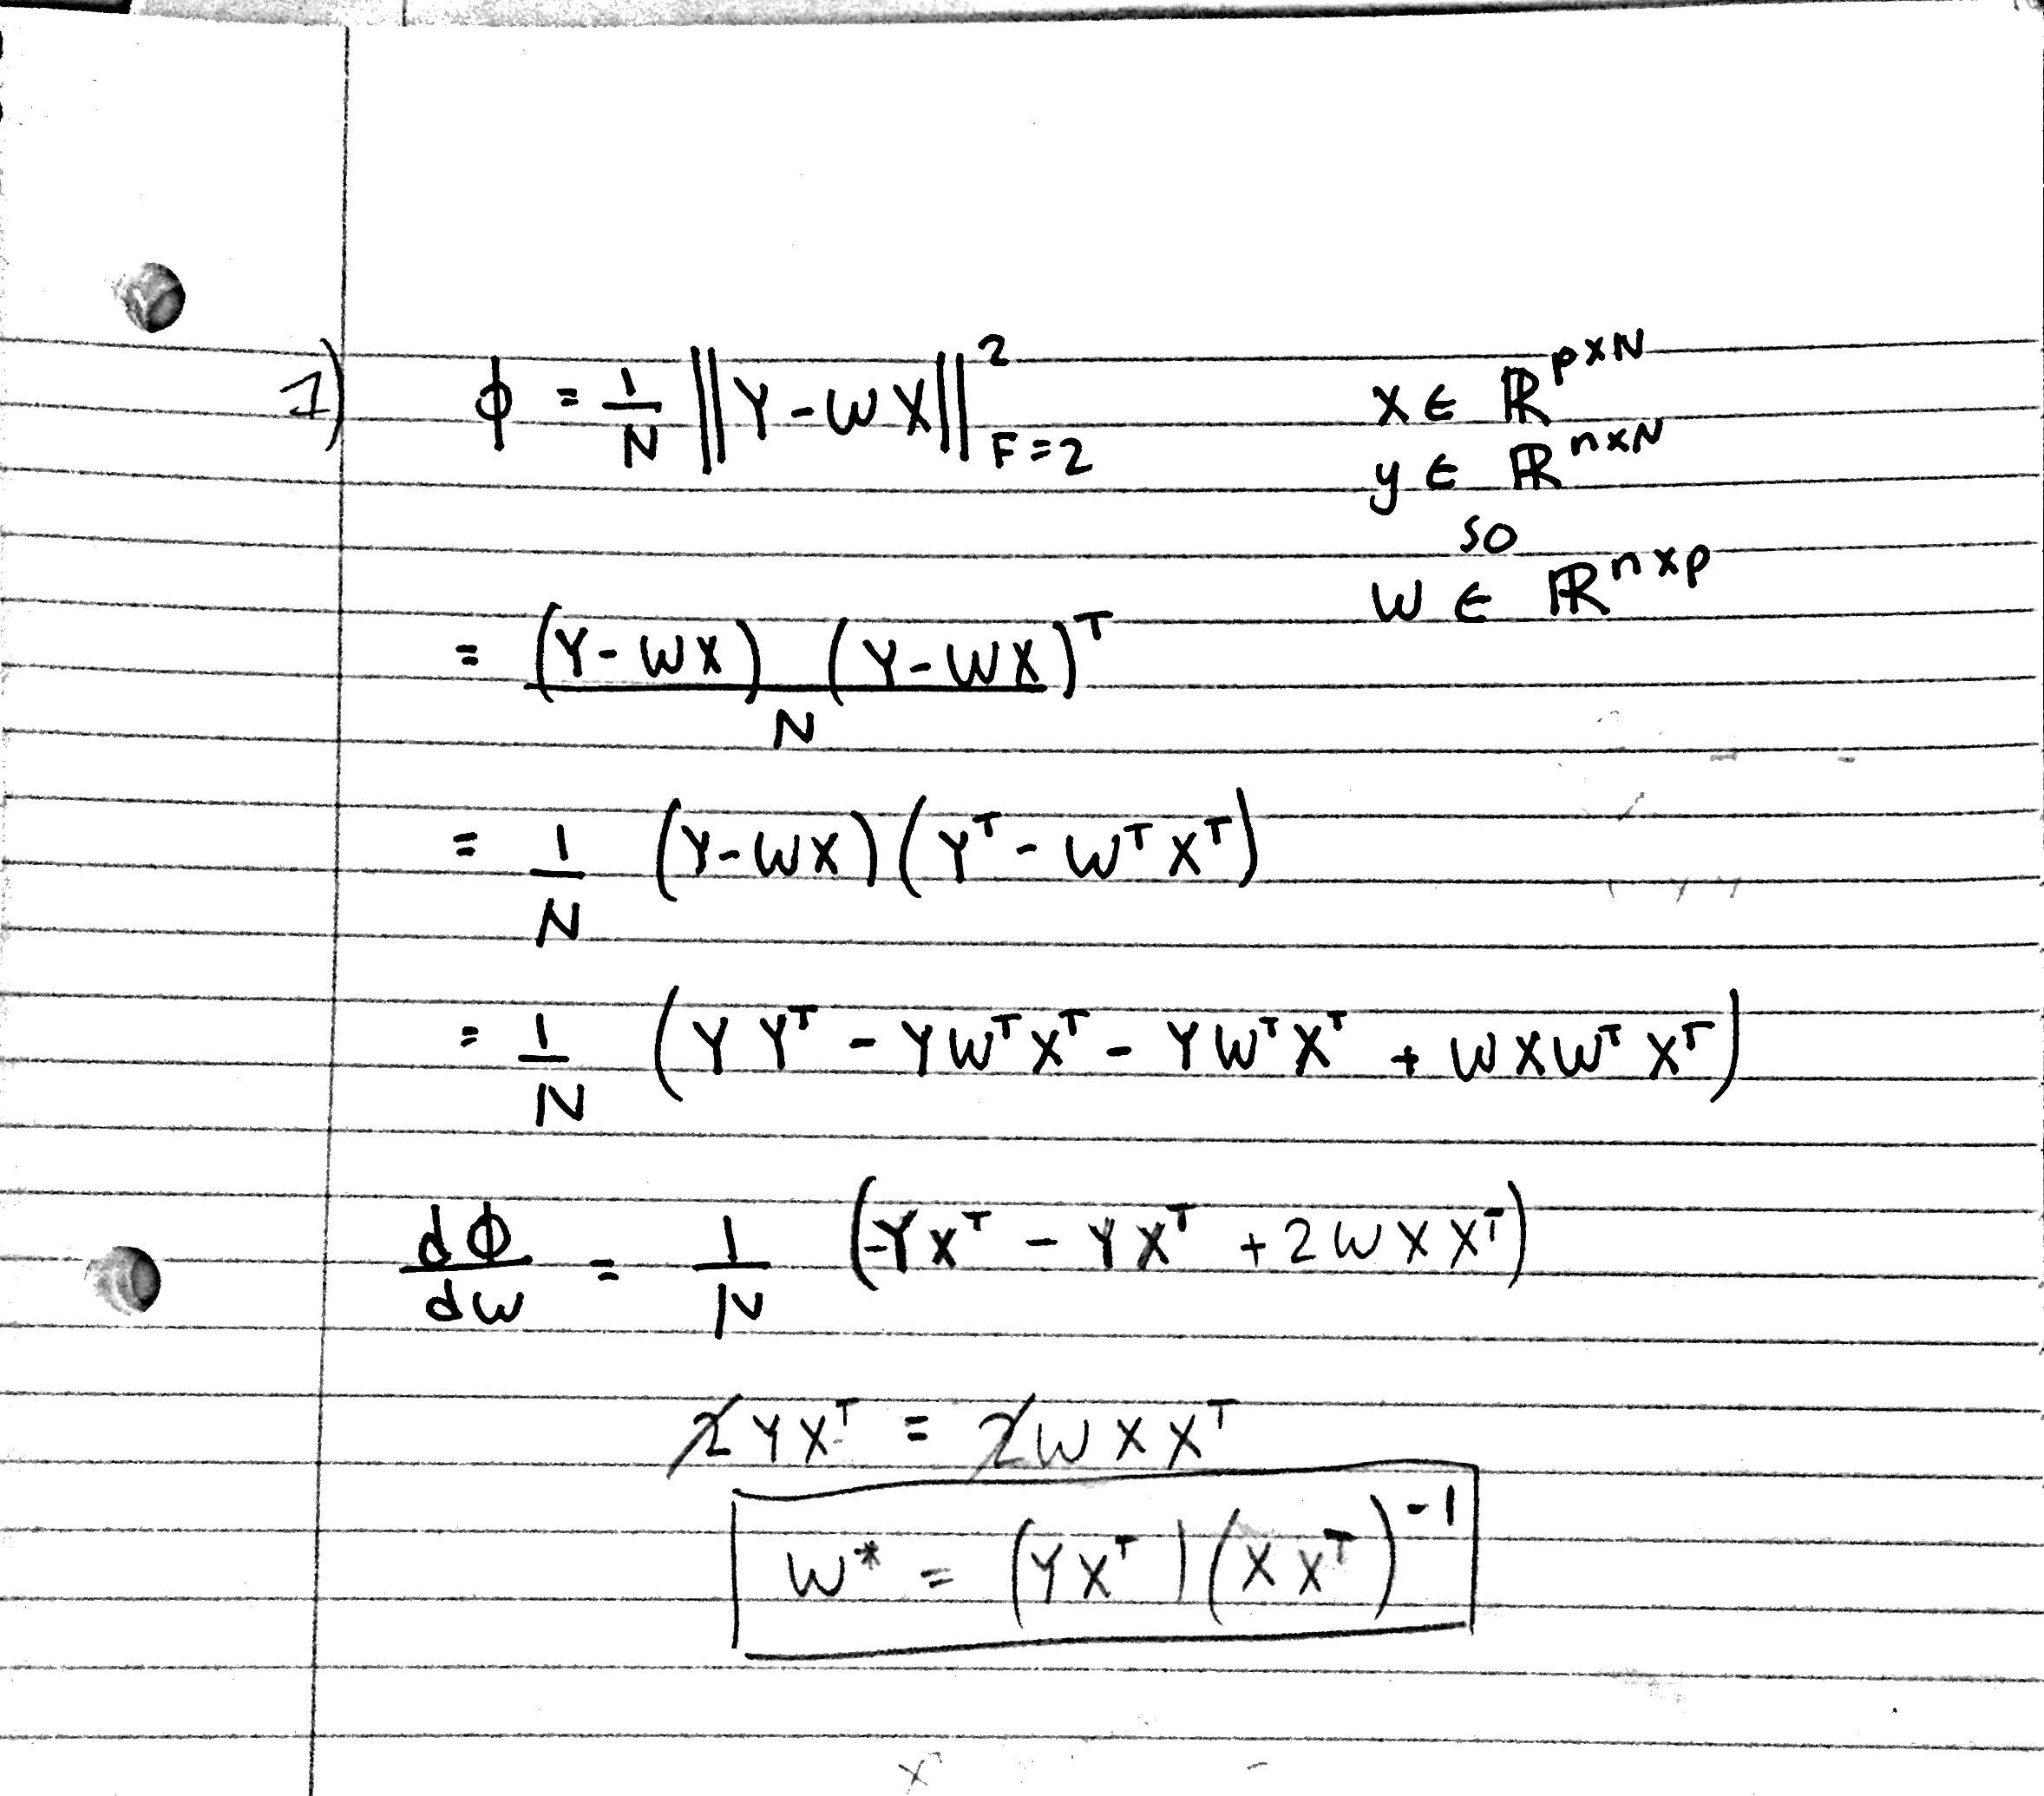 1) ϕ = 1/N ||Y - WX||²_{F=2}
X ∈ ℝ^{p×N}
y ∈ ℝ^{n×N}
so
W ∈ ℝ^{n×p}
= (Y - WX) (Y - WX)^T / N
= 1/N (Y - WX)(Y^T - W^T X^T)
= 1/N (Y Y^T - Y W^T X^T - Y W^T X^T + W X W^T X^T)
dϕ/dw = 1/N (-Y X^T - Y X^T + 2 W X X^T)
2 Y X^T = 2 W X X^T
W* = (Y X^T)(X X^T)^{-1}